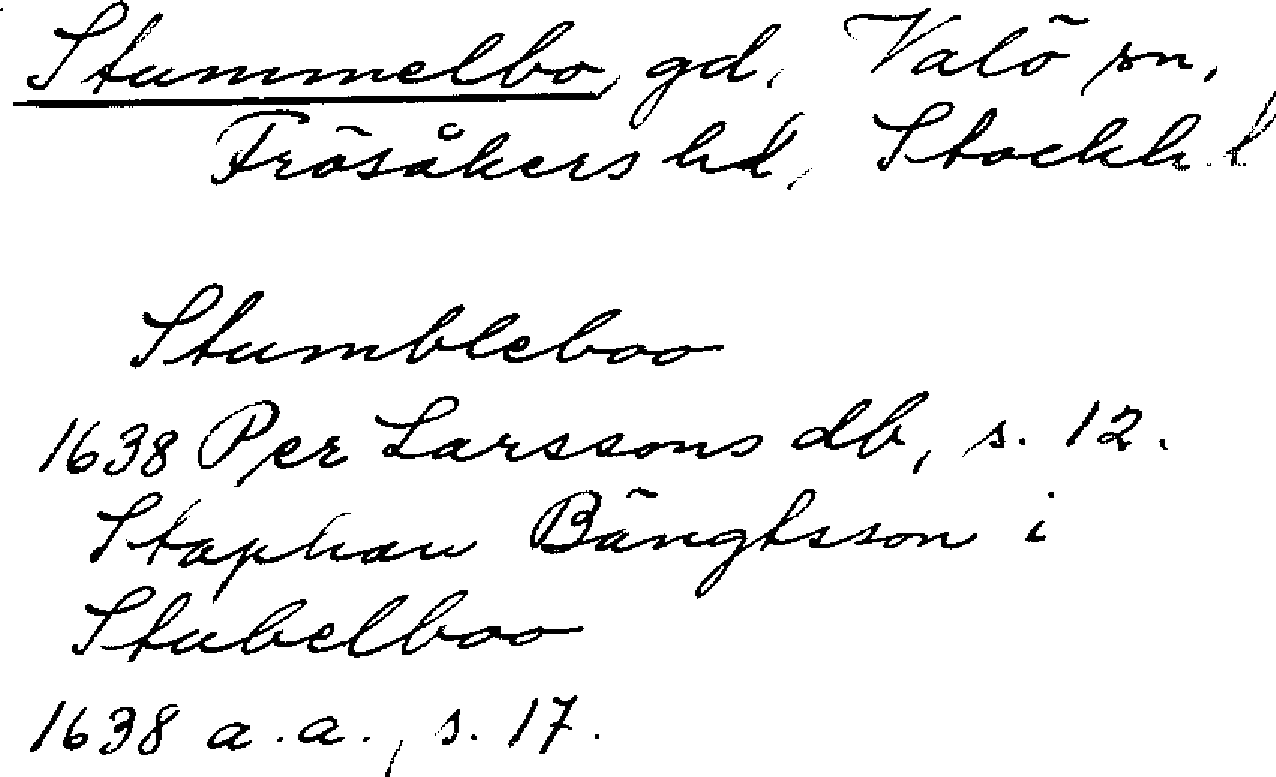 Stummelbo, gd, Valö sn,
Frösåkers hd, Stockh. l
Stumbleboo
1638 Per Larssons db, s. 12.
Staphan Bängtsson i
Stubelboo
1638 a.a., s. 17.